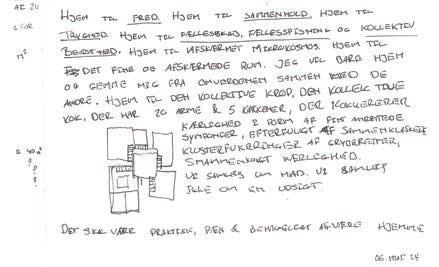 HJEM TIL FRED. HJEM TIL SAMMENHOLD. HJEM TIL
TRYGHED. HJEM TIL FÆLLESBAD, FÆLLESSPISNING OG KOLLEKTIV
HJEM TIL AFSKÆRMET MIKROKOSMOS. HJEM TIL
DET FINE OG AFSKÆRMEDE RUM. JEG VIL BARE HJEM
OG GEMME MIG FRA OMVERDENEN SAMMEN MED DE
ANDRE. HJEM TIL DEN KOLLEKTIVE KROP, DEN KOLLEKTIVE
KOK, DER HAR 20 ARME & 5 KØKKENER, DER
KÆRLIGHED I FORM AF FINT ANRETTEDE
SYMFONIER, EFTERFULGT AF
AF GRYDERETTER,
SMAMMENKOGT KÆRLIGHED.
VI SAMLES OM MAD. VI SAMLES
IKKE OM EN UDSIGT.
DET SKAL VÆRE PRAKTISK, PÆN & BEHAGELIGT AT VÆRE HJEMME
M²
?
?
?
06. MAJ 24